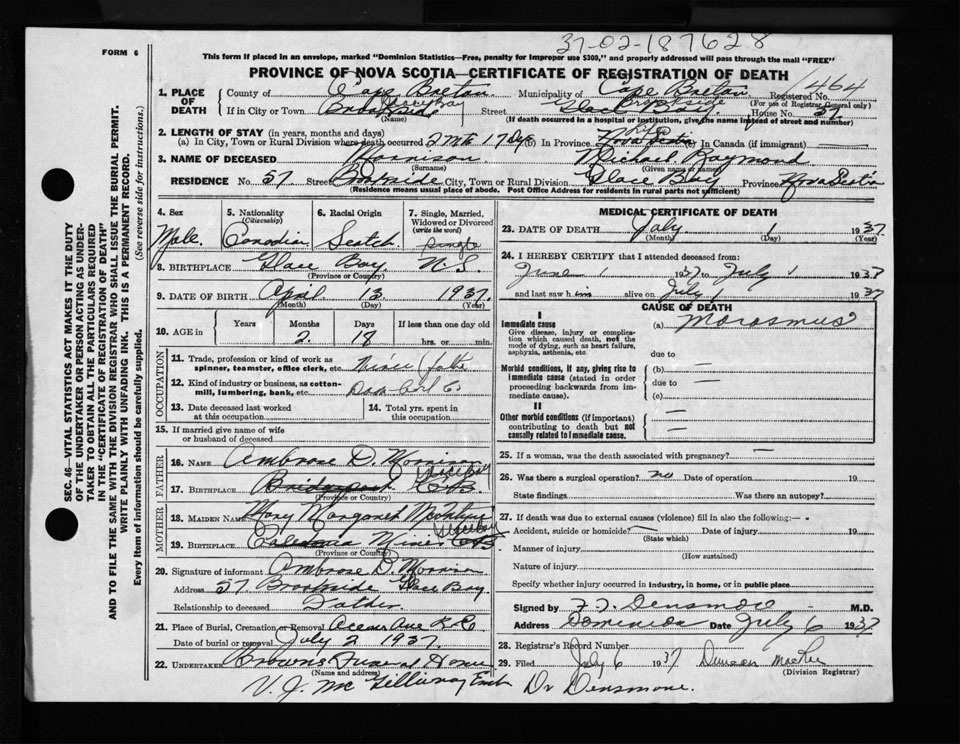 37-02-187628
FORM 6
This form if placed in an envelope, marked "Dominion Statistics—Free, penalty for improper use $300," and properly addressed will pass through the mail "FREE"
PROVINCE OF NOVA SCOTIA—CERTIFICATE OF REGISTRATION OF DEATH
SEC. 46—VITAL STATISTICS ACT MAKES IT THE DUTY
OF THE UNDERTAKER OR PERSON ACTING AS UNDER-
TAKER TO OBTAIN ALL THE PARTICULARS REQUIRED
IN THE "CERTIFICATE OF REGISTRATION OF DEATH"
AND TO FILE THE SAME WITH THE DIVISION REGISTRAR WHO SHALL ISSUE THE BURIAL PERMIT.
WRITE PLAINLY WITH UNFADING INK. THIS IS A PERMANENT RECORD.
Every item of information should be carefully supplied. (See reverse side for instructions.)
1. PLACE OF DEATH County of Cape Breton Municipality of Cape Breton Registered No. 1464
(For use of Registrar General only)
If in City or Town Glace Bay Street Brookside House No. 57
(Name) (If death occurred in a hospital or institution, give the name instead of street and number)
2. LENGTH OF STAY (in years, months and days)
(a) In City, Town or Rural Division where death occurred 2 Mts 17 Dys (b) In Province Life (c) In Canada (if immigrant)
3. NAME OF DECEASED Morrison Michael Raymond
(Surname) (Given name or names)
RESIDENCE No. 57 Street Brookside City, Town or Rural Division Glace Bay Province Nova Scotia
(Residence means usual place of abode. Post Office Address for residents in rural parts not sufficient)
4. Sex Male
5. Nationality (Citizenship) Canadian
6. Racial Origin Scotch
7. Single, Married, Widowed or Divorced (write the word) Single
8. BIRTHPLACE Glace Bay N.S.
(Province or Country)
9. DATE OF BIRTH April 13 1937
(Month) (Day) (Year)
10. AGE in Years Months 2 Days 18 If less than one day old hrs. or min.
OCCUPATION
11. Trade, profession or kind of work as spinner, teamster, office clerk, etc.
12. Kind of industry or business, as cotton-mill, lumbering, bank, etc.
13. Date deceased last worked at this occupation
14. Total yrs. spent in this occupation
15. If married give name of wife or husband of deceased
FATHER
16. NAME Ambrose D. Morrison
17. BIRTHPLACE Bridgeport Glace Bay C.B.
(Province or Country)
MOTHER
18. MAIDEN NAME Mary Margaret
19. BIRTHPLACE Caledonia Mines Glace Bay C.B.
(Province or Country)
20. Signature of informant Ambrose D. Morrison
Address 57 Brookside Glace Bay
Relationship to deceased Father
21. Place of Burial, Cremation or Removal
Date of burial or removal July 2 1937
22. UNDERTAKER Brown's Funeral Home
(Name and address)
V. J. McGillivray Emb
Dr Densmore.
MEDICAL CERTIFICATE OF DEATH
23. DATE OF DEATH July 1 1937
(Month) (Day) (Year)
24. I HEREBY CERTIFY that I attended deceased from:
June 1 1937 to July 1 1937
and last saw h im alive on July 1 1937
CAUSE OF DEATH
I
Immediate cause (a) Marasmus
Give disease, injury or complication which caused death, not the mode of dying, such as heart failure, asphyxia, asthenia, etc.
due to
Morbid conditions, if any, giving rise to immediate cause (stated in order proceeding backwards from immediate cause). (b) —
due to —
(c)
II
Other morbid conditions (if important) contributing to death but not causally related to immediate cause. — —
25. If a woman, was the death associated with pregnancy? —
26. Was there a surgical operation? no Date of operation 19
State findings Was there an autopsy?
27. If death was due to external causes (violence) fill in also the following:—
Accident, suicide or homicide? — Date of injury 19
(State which)
Manner of injury
(How sustained)
Nature of injury
Specify whether injury occurred in industry, in home, or in public place
Signed by F. J. Densmore M.D.
Address Dominion Date July 6 1937
28. Registrar's Record Number
29. Filed July 6 1937 Duncan MacRae
(Division Registrar)